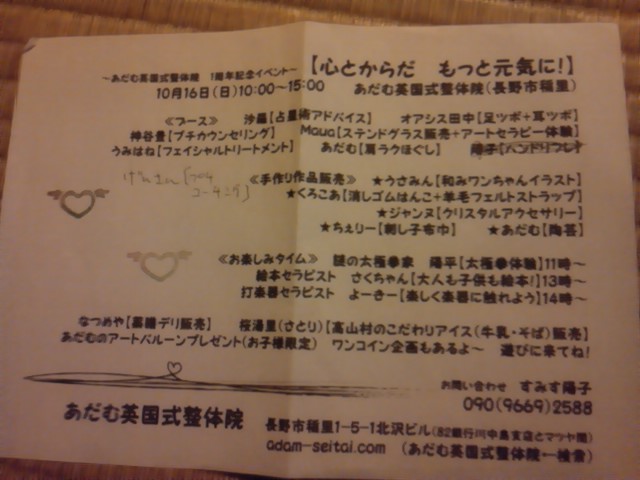 ～あだむ英国式整体院 1周年記念イベント～ 【心とからだ もっと元気に!】
10月16日(日)10:00～15:00 あだむ英国式整体院(長野市稲里)
≪ブース≫ 沙羅【占星術アドバイス】 オアシス田中【足ツボ+耳ツボ】
神谷豊【プチカウンセリング】 Maua【ステンドグラス販売+アートセラピー体験】
うみはね【フェイシャルトリートメント】 あだむ【肩ラクほぐし】 陽子【ハンドリフレ】
げんさん【プチコーチング】
≪手作り作品販売≫ ★うさみん【和みワンちゃんイラスト】
★くろこあ【消しゴムはんこ+羊毛フェルトストラップ】
★ジャンヌ【クリスタルアクセサリー】
★ちぇりー【刺し子布巾】 ★あだむ【陶芸】
≪お楽しみタイム≫ 謎の太極拳家 陽平【太極拳体験】11時～
絵本セラピスト さくちゃん【大人も子供も絵本!】13時～
打楽器セラピスト よーきー【楽しく楽器に触れよう】14時～
なつめや【薬膳デリ販売】 桜湯里(さとり)【高山村のこだわりアイス(牛乳・そば)販売】
あだむのアートバルーンプレゼント(お子様限定) ワンコイン企画もあるよ～ 遊びに来てね!
お問い合わせ すみす陽子
090(9669)2588
あだむ英国式整体院 長野市稲里1-5-1北沢ビル(82銀行川中島支店とマツヤ間)
adam-seitai.com (あだむ英国式整体院←検索)